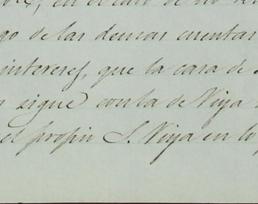 en el caso de no
go de las demas cuentas
intereses, que la casa de
sigue con la de Viya
el propio S. Viya en lo